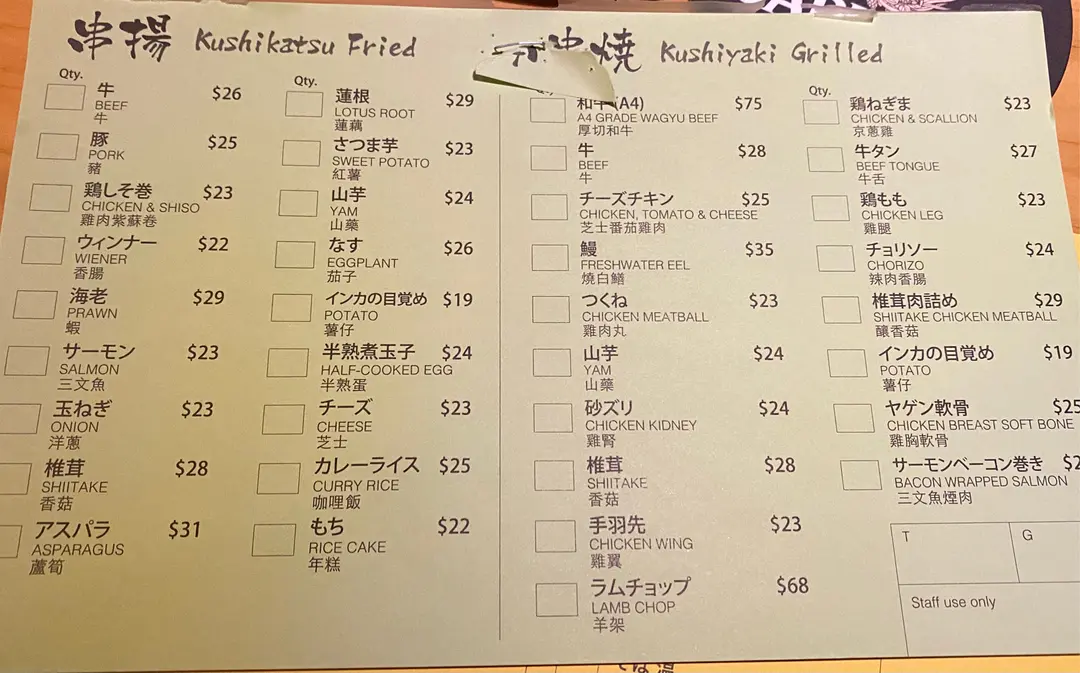 串揚 Kushikatsu Fried
Qty.
牛 $26
BEEF
牛
豚 $25
PORK
豬
鶏しそ巻 $23
CHICKEN & SHISO
雞肉紫蘇卷
ウィンナー $22
WIENER
香腸
海老 $29
PRAWN
蝦
サーモン $23
SALMON
三文魚
玉ねぎ $23
ONION
洋蔥
椎茸 $28
SHIITAKE
香菇
アスパラ $31
ASPARAGUS
蘆筍
Qty.
蓮根 $29
LOTUS ROOT
蓮藕
さつま芋 $23
SWEET POTATO
紅薯
山芋 $24
YAM
山藥
なす $26
EGGPLANT
茄子
インカの目覚め $19
POTATO
薯仔
半熟煮玉子 $24
HALF-COOKED EGG
半熟蛋
チーズ $23
CHEESE
芝士
カレーライス $25
CURRY RICE
咖哩飯
もち $22
RICE CAKE
年糕
焼 Kushiyaki Grilled
和牛 (A4) $75
A4 GRADE WAGYU BEEF
厚切和牛
牛 $28
BEEF
牛
チーズチキン $25
CHICKEN, TOMATO & CHEESE
芝士番茄雞肉
鰻 $35
FRESHWATER EEL
燒白鱔
つくね $23
CHICKEN MEATBALL
雞肉丸
山芋 $24
YAM
山藥
砂ズリ $24
CHICKEN KIDNEY
雞腎
椎茸 $28
SHIITAKE
香菇
手羽先 $23
CHICKEN WING
雞翼
ラムチョップ $68
LAMB CHOP
羊架
Qty.
鶏ねぎま $23
CHICKEN & SCALLION
京蔥雞
牛タン $27
BEEF TONGUE
牛舌
鶏もも $23
CHICKEN LEG
雞腿
チョリソー $24
CHORIZO
辣肉香腸
椎茸肉詰め $29
SHIITAKE CHICKEN MEATBALL
釀香菇
インカの目覚め $19
POTATO
薯仔
ヤゲン軟骨 $25
CHICKEN BREAST SOFT BONE
雞胸軟骨
サーモンベーコン巻き $2
BACON WRAPPED SALMON
三文魚煙肉
T G
Staff use only